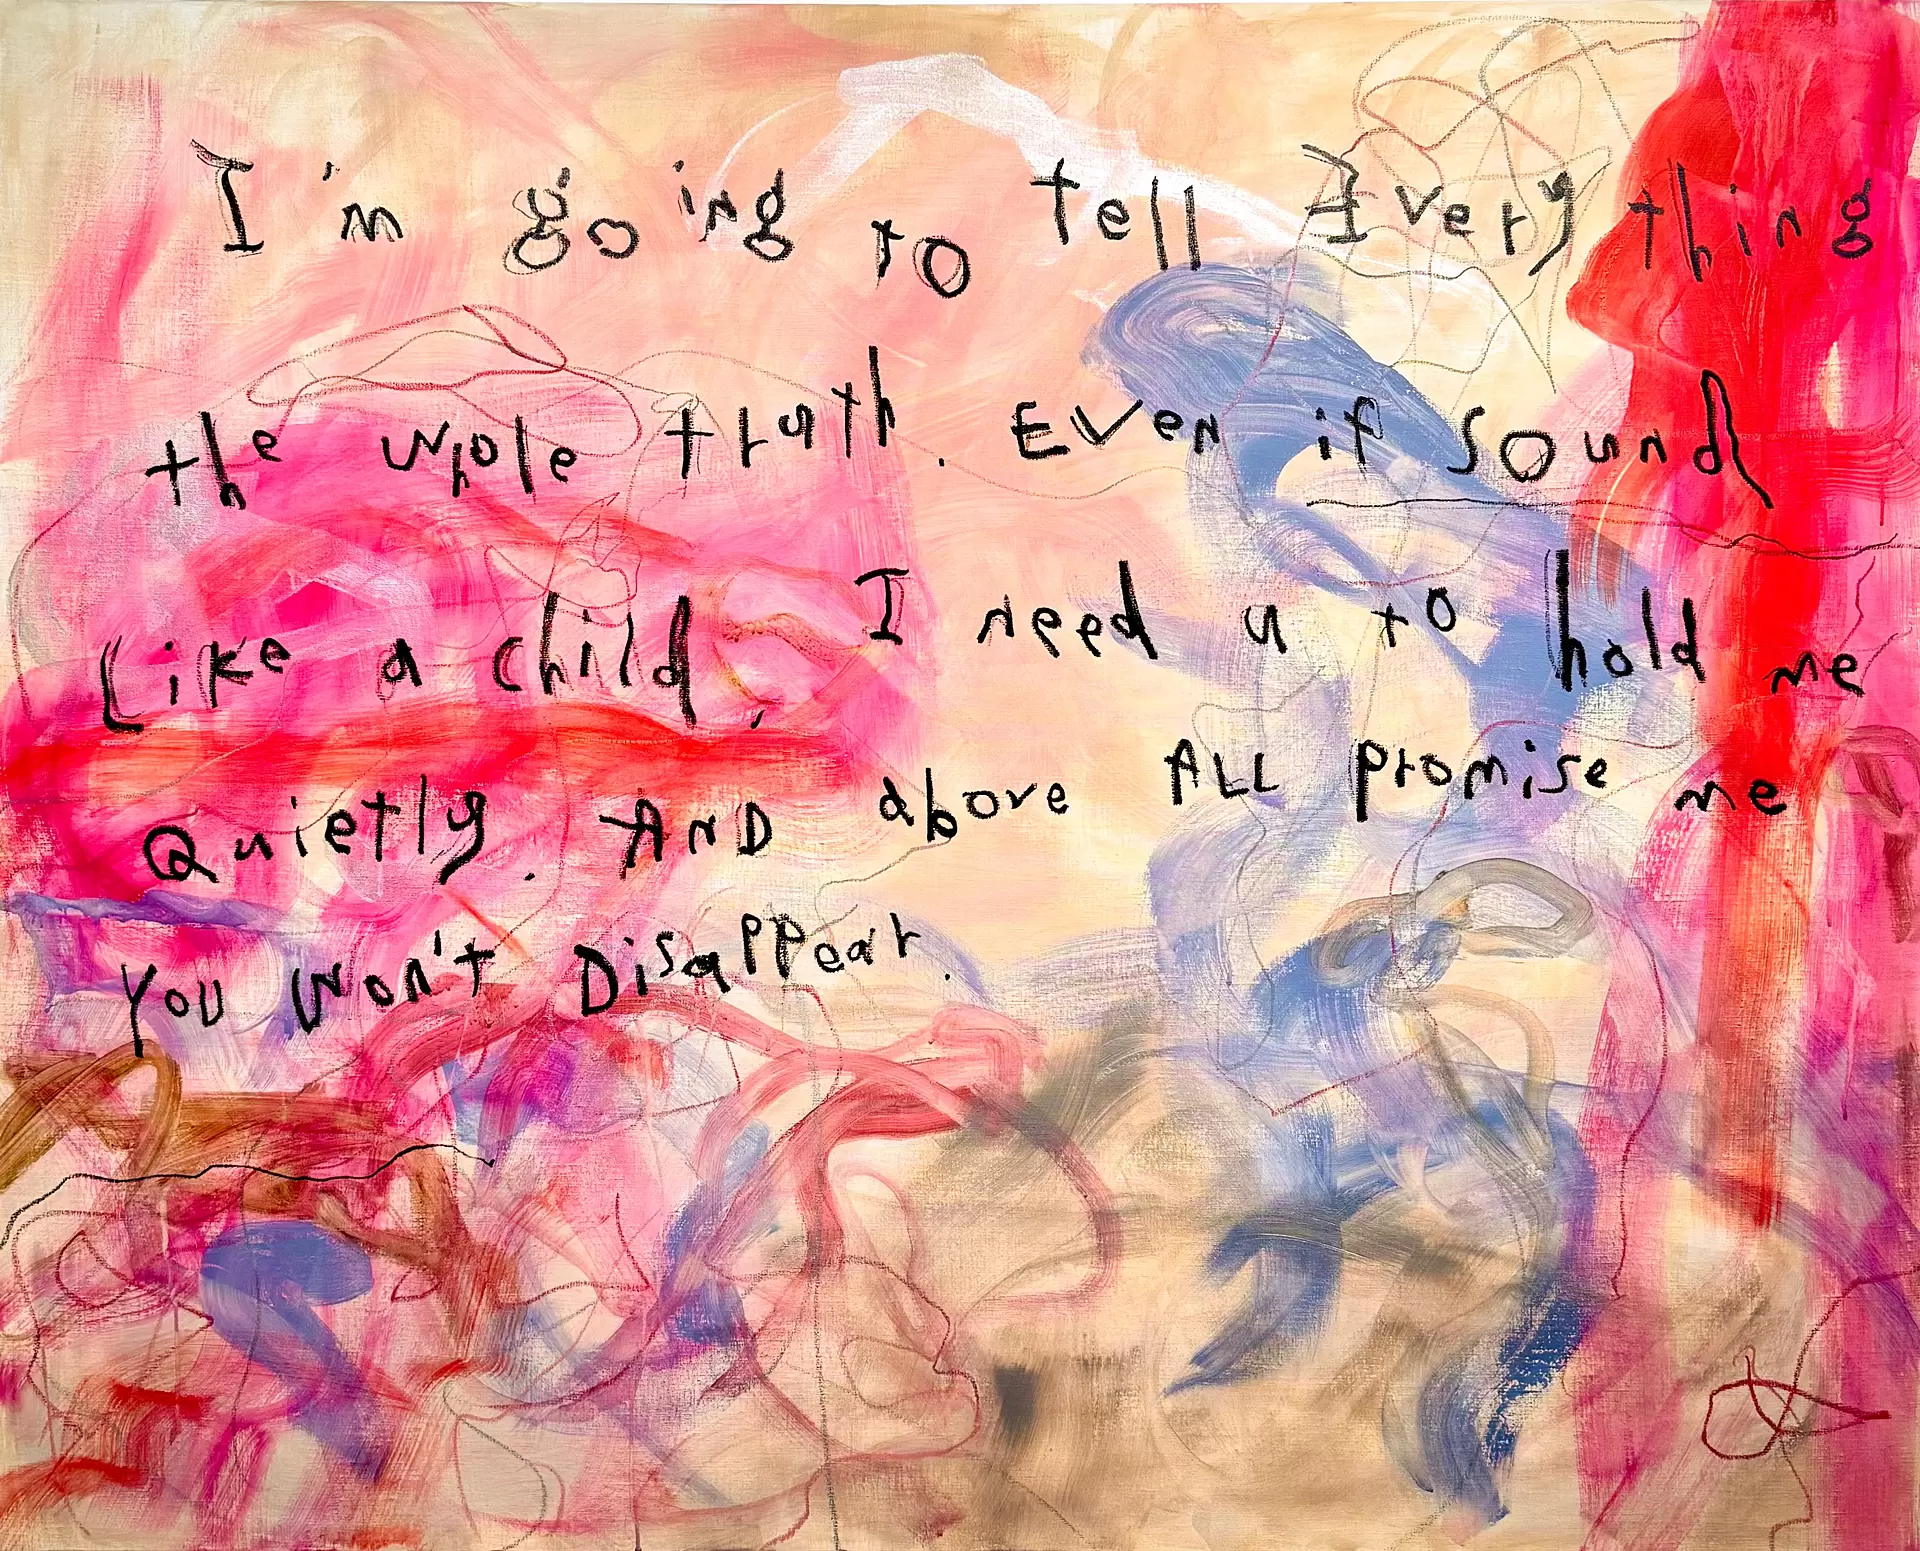 I'm going to tell Everything
the whole truth. Even if sound
Like a child, I need u to hold me
Quietly. AND above ALL promise me
YOU Won't Disappear.